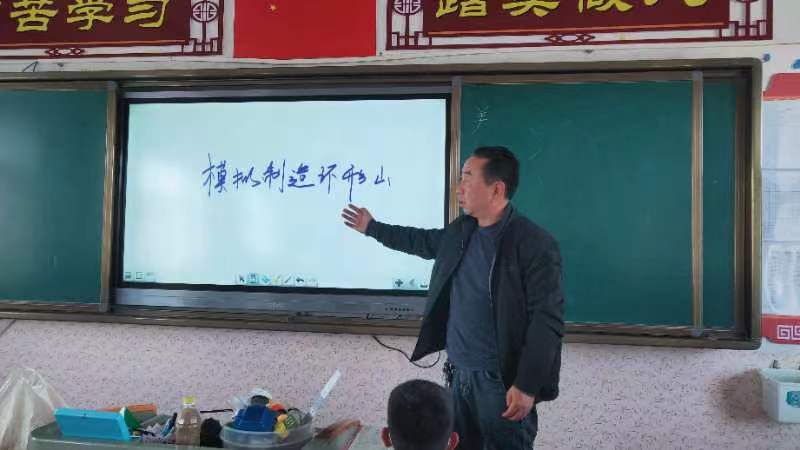 苦学习
踏实做人
模拟制造环形山